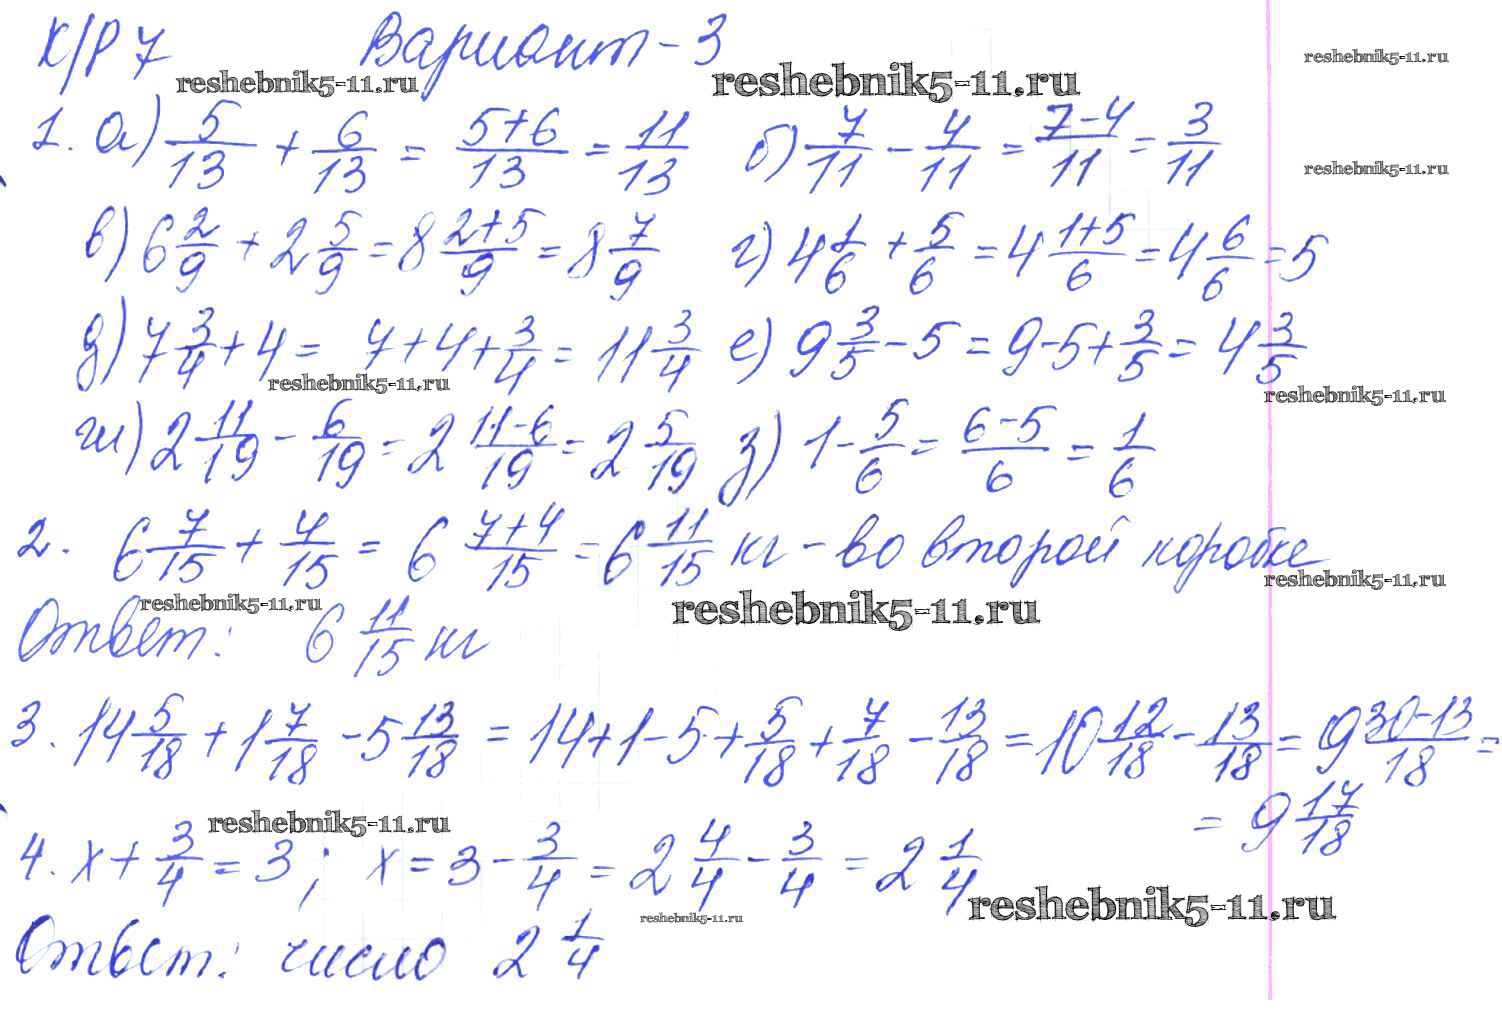 К/Р 7 Вариант-3
reshebnik5-11.ru reshebnik5-11.ru reshebnik5-11.ru
1. а) 5/13 + 6/13 = (5+6)/13 = 11/13 б) 7/11 - 4/11 = (7-4)/11 = 3/11
reshebnik5-11.ru
в) 6 2/9 + 2 5/9 = 8 (2+5)/9 = 8 7/9 г) 4 1/6 + 5/6 = 4 (1+5)/6 = 4 6/6 = 5
д) 7 3/4 + 4 = 7 + 4 + 3/4 = 11 3/4 е) 9 3/5 - 5 = 9 - 5 + 3/5 = 4 3/5
reshebnik5-11.ru reshebnik5-11.ru
ж) 2 11/19 - 6/19 = 2 (11-6)/19 = 2 5/19 з) 1 - 5/6 = (6-5)/6 = 1/6
2. 6 7/15 + 4/15 = 6 (7+4)/15 = 6 11/15 кг - во второй коробке
reshebnik5-11.ru reshebnik5-11.ru reshebnik5-11.ru
Ответ: 6 11/15 кг
3. 14 5/18 + 1 7/18 - 5 13/18 = 14 + 1 - 5 + 5/18 + 7/18 - 13/18 = 10 12/18 - 13/18 = 9 (30-13)/18 =
= 9 17/18
reshebnik5-11.ru
4. x + 3/4 = 3; x = 3 - 3/4 = 2 4/4 - 3/4 = 2 1/4
reshebnik5-11.ru reshebnik5-11.ru
Ответ: число 2 1/4